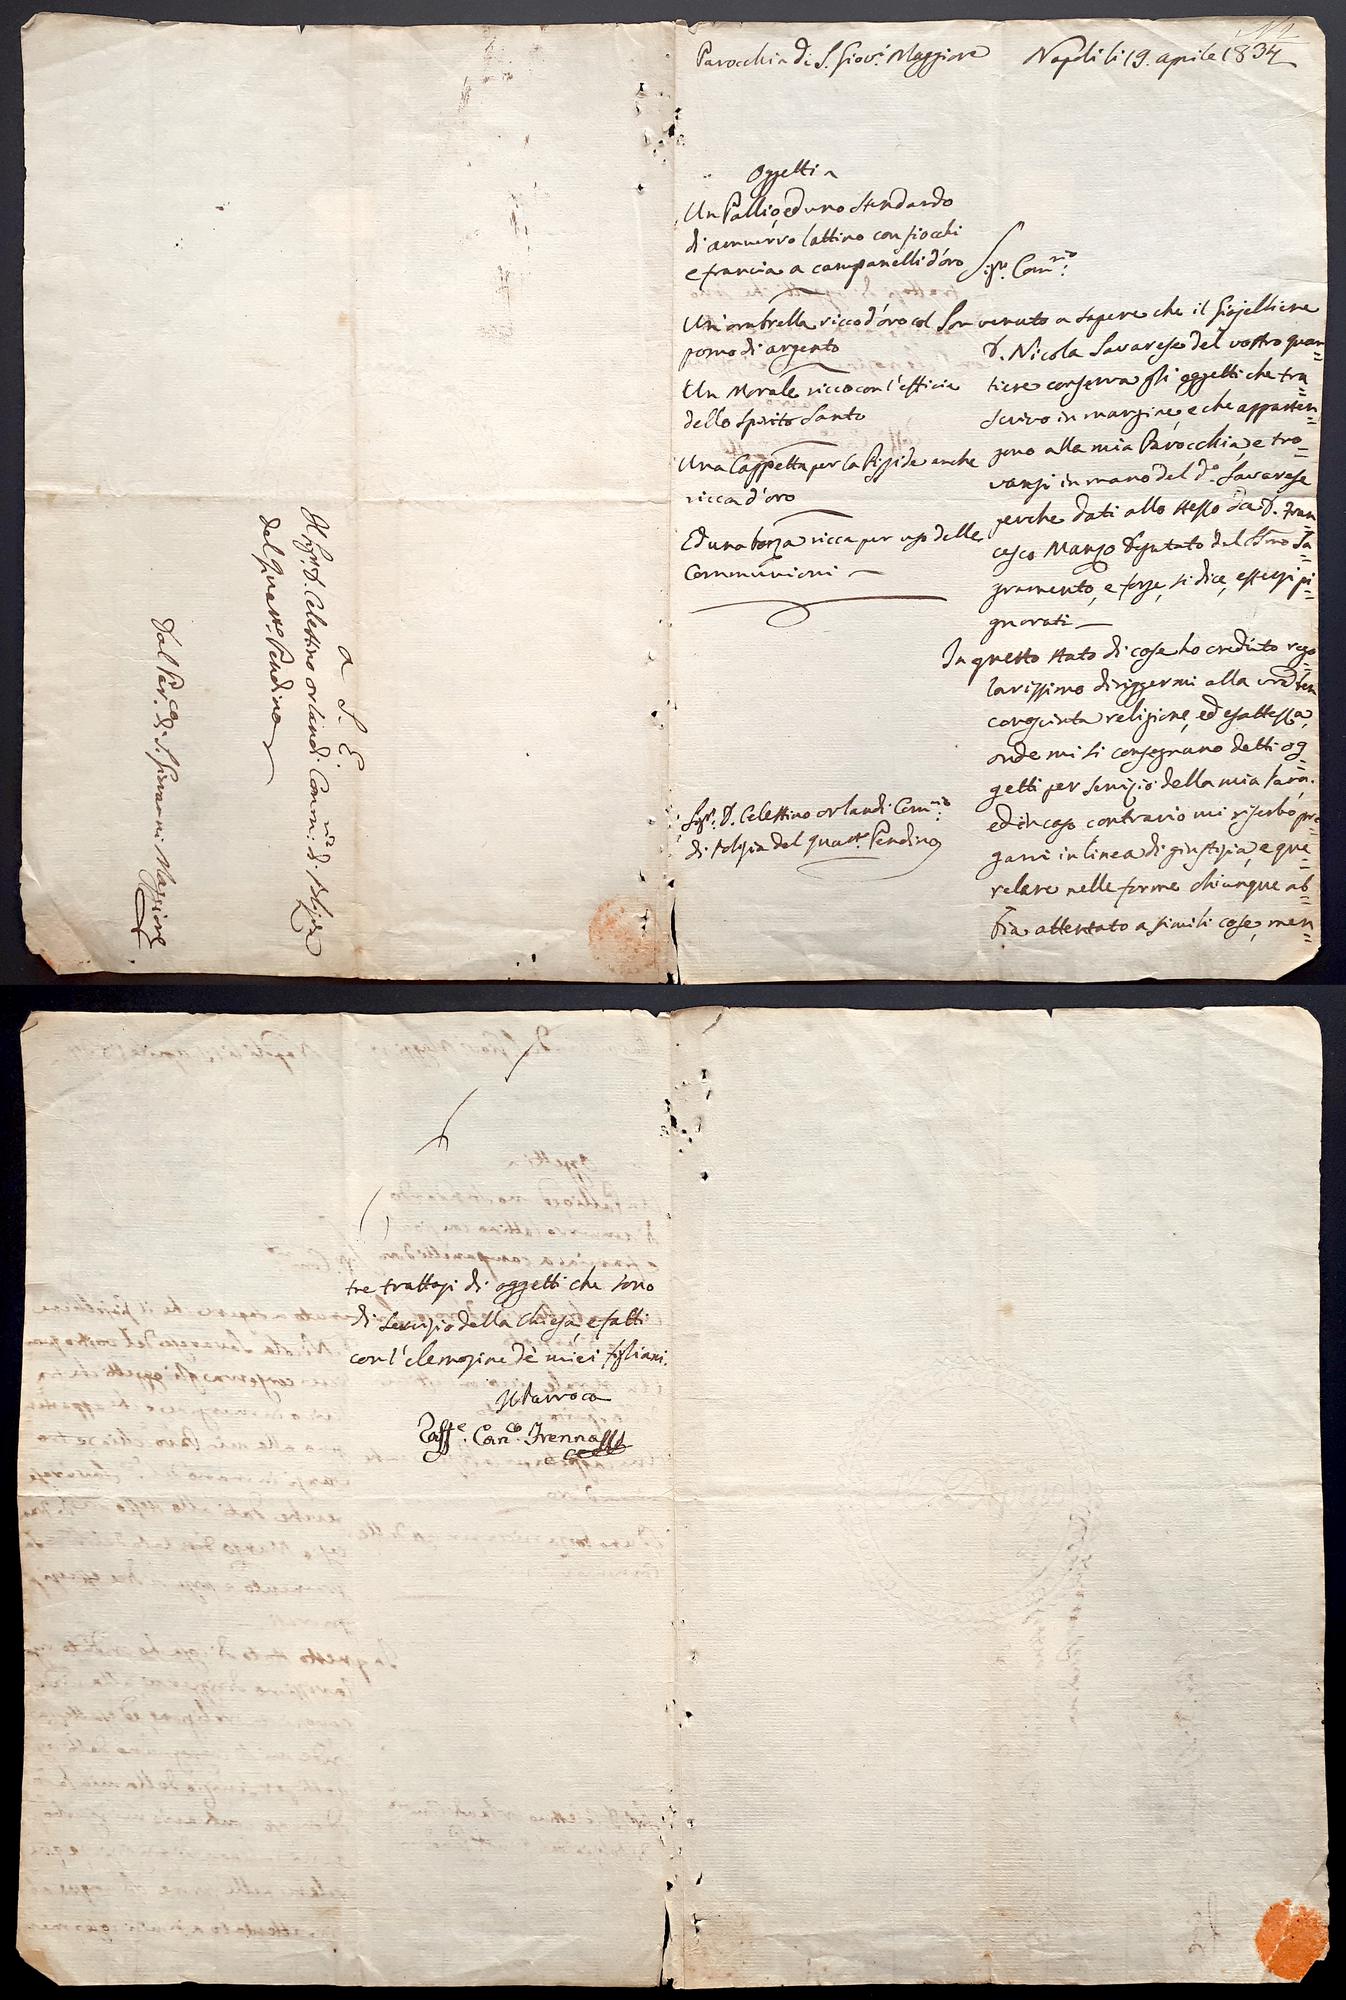 Parocchia di S. Giov.ⁱ Maggiore
Napoli li 19. aprile 1834
Oggetti
Un Pallio, ed uno stendardo
di amuerro lattino con fiocchi
e francia a campanelli d'oro
Un'ombrella ricco d'oro col
pomo di argento
Un Morale ricco con l'efficie
dello Spirito Santo
Una Cappetta per la Pisside anche
ricca d'oro
Ed una borza ricca per uso delle
Communioni
Sig.ʳ D. Celestino Orlandi Com.ʳⁱᵒ
di Polizia del quart.ᵉ Pendino
Sig.ʳ Com.ʳⁱᵒ
Son venuto a sapere che il Giojelliere
D. Nicola Savarese del vostro quar=
tiere conserva gli oggetti che tra=
scrivo in margine, e che apparten=
gono alla mia Parocchia, e tro=
vansi in mano del d.º Savarese
perche dati allo stesso da D. Fran=
cesco Manzo Deputato del SSmo Sa=
gramento, e forse, si dice, essersi pi=
gnorati
In questo stato di cose ho creduto rego
larissimo diriggermi alla vra ben
conosciuta religione, ed esattezza,
onde mi si consegnano detti og=
getti per servizio della mia Para.
ed in caso contrario mi riserbo pre=
garvi in linea di giustizia, e que=
relare nelle forme chiunque ab=
bia attentato a simili cose, men=
a S. E.
Il Sig.ʳ D. Celestino Orlandi Comm.ʳⁱᵒ di Polizia
del quart.ᵉ Pendino
Dal Par.ᶜᵒ di S. Giovanni Maggiore
tre trattasi di oggetti che sono
di servizio della chiesa, e fatti
con l'elemosine de' miei figliani.
Il Parroco
Raff.ᵉ Can.ᶜᵒ